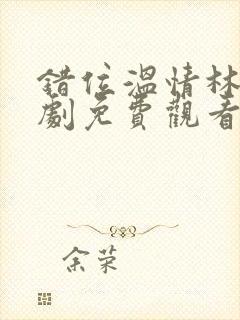 錯位溫情林
劇免費觀看
余荣